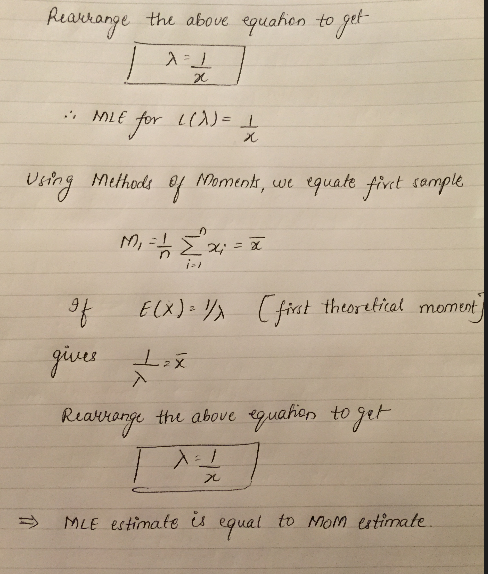 Rearrange the above equation to get
λ = 1/x
∴ MLE for L(λ) = 1/x
Using Methods Of Moments, we equate first sample
M₁ = 1/n ∑ᵢ₌₁ⁿ xᵢ = x̄
If E(X) = 1/λ [first theoretical moment]
gives 1/λ = x̄
Rearrange the above equation to get
λ = 1/x
⇒ MLE estimate is equal to MoM estimate.